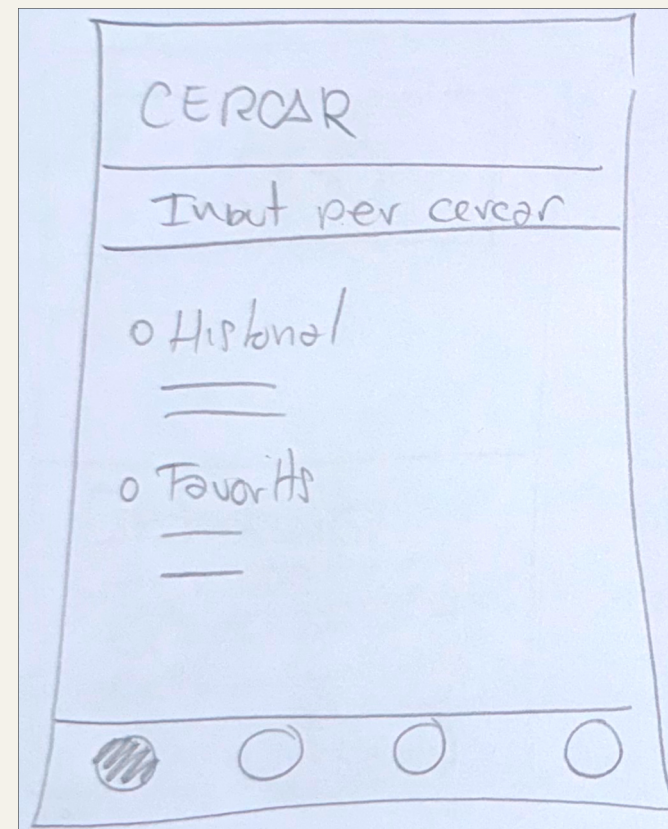 CERCAR
Input per cercar
Historial
Favorits